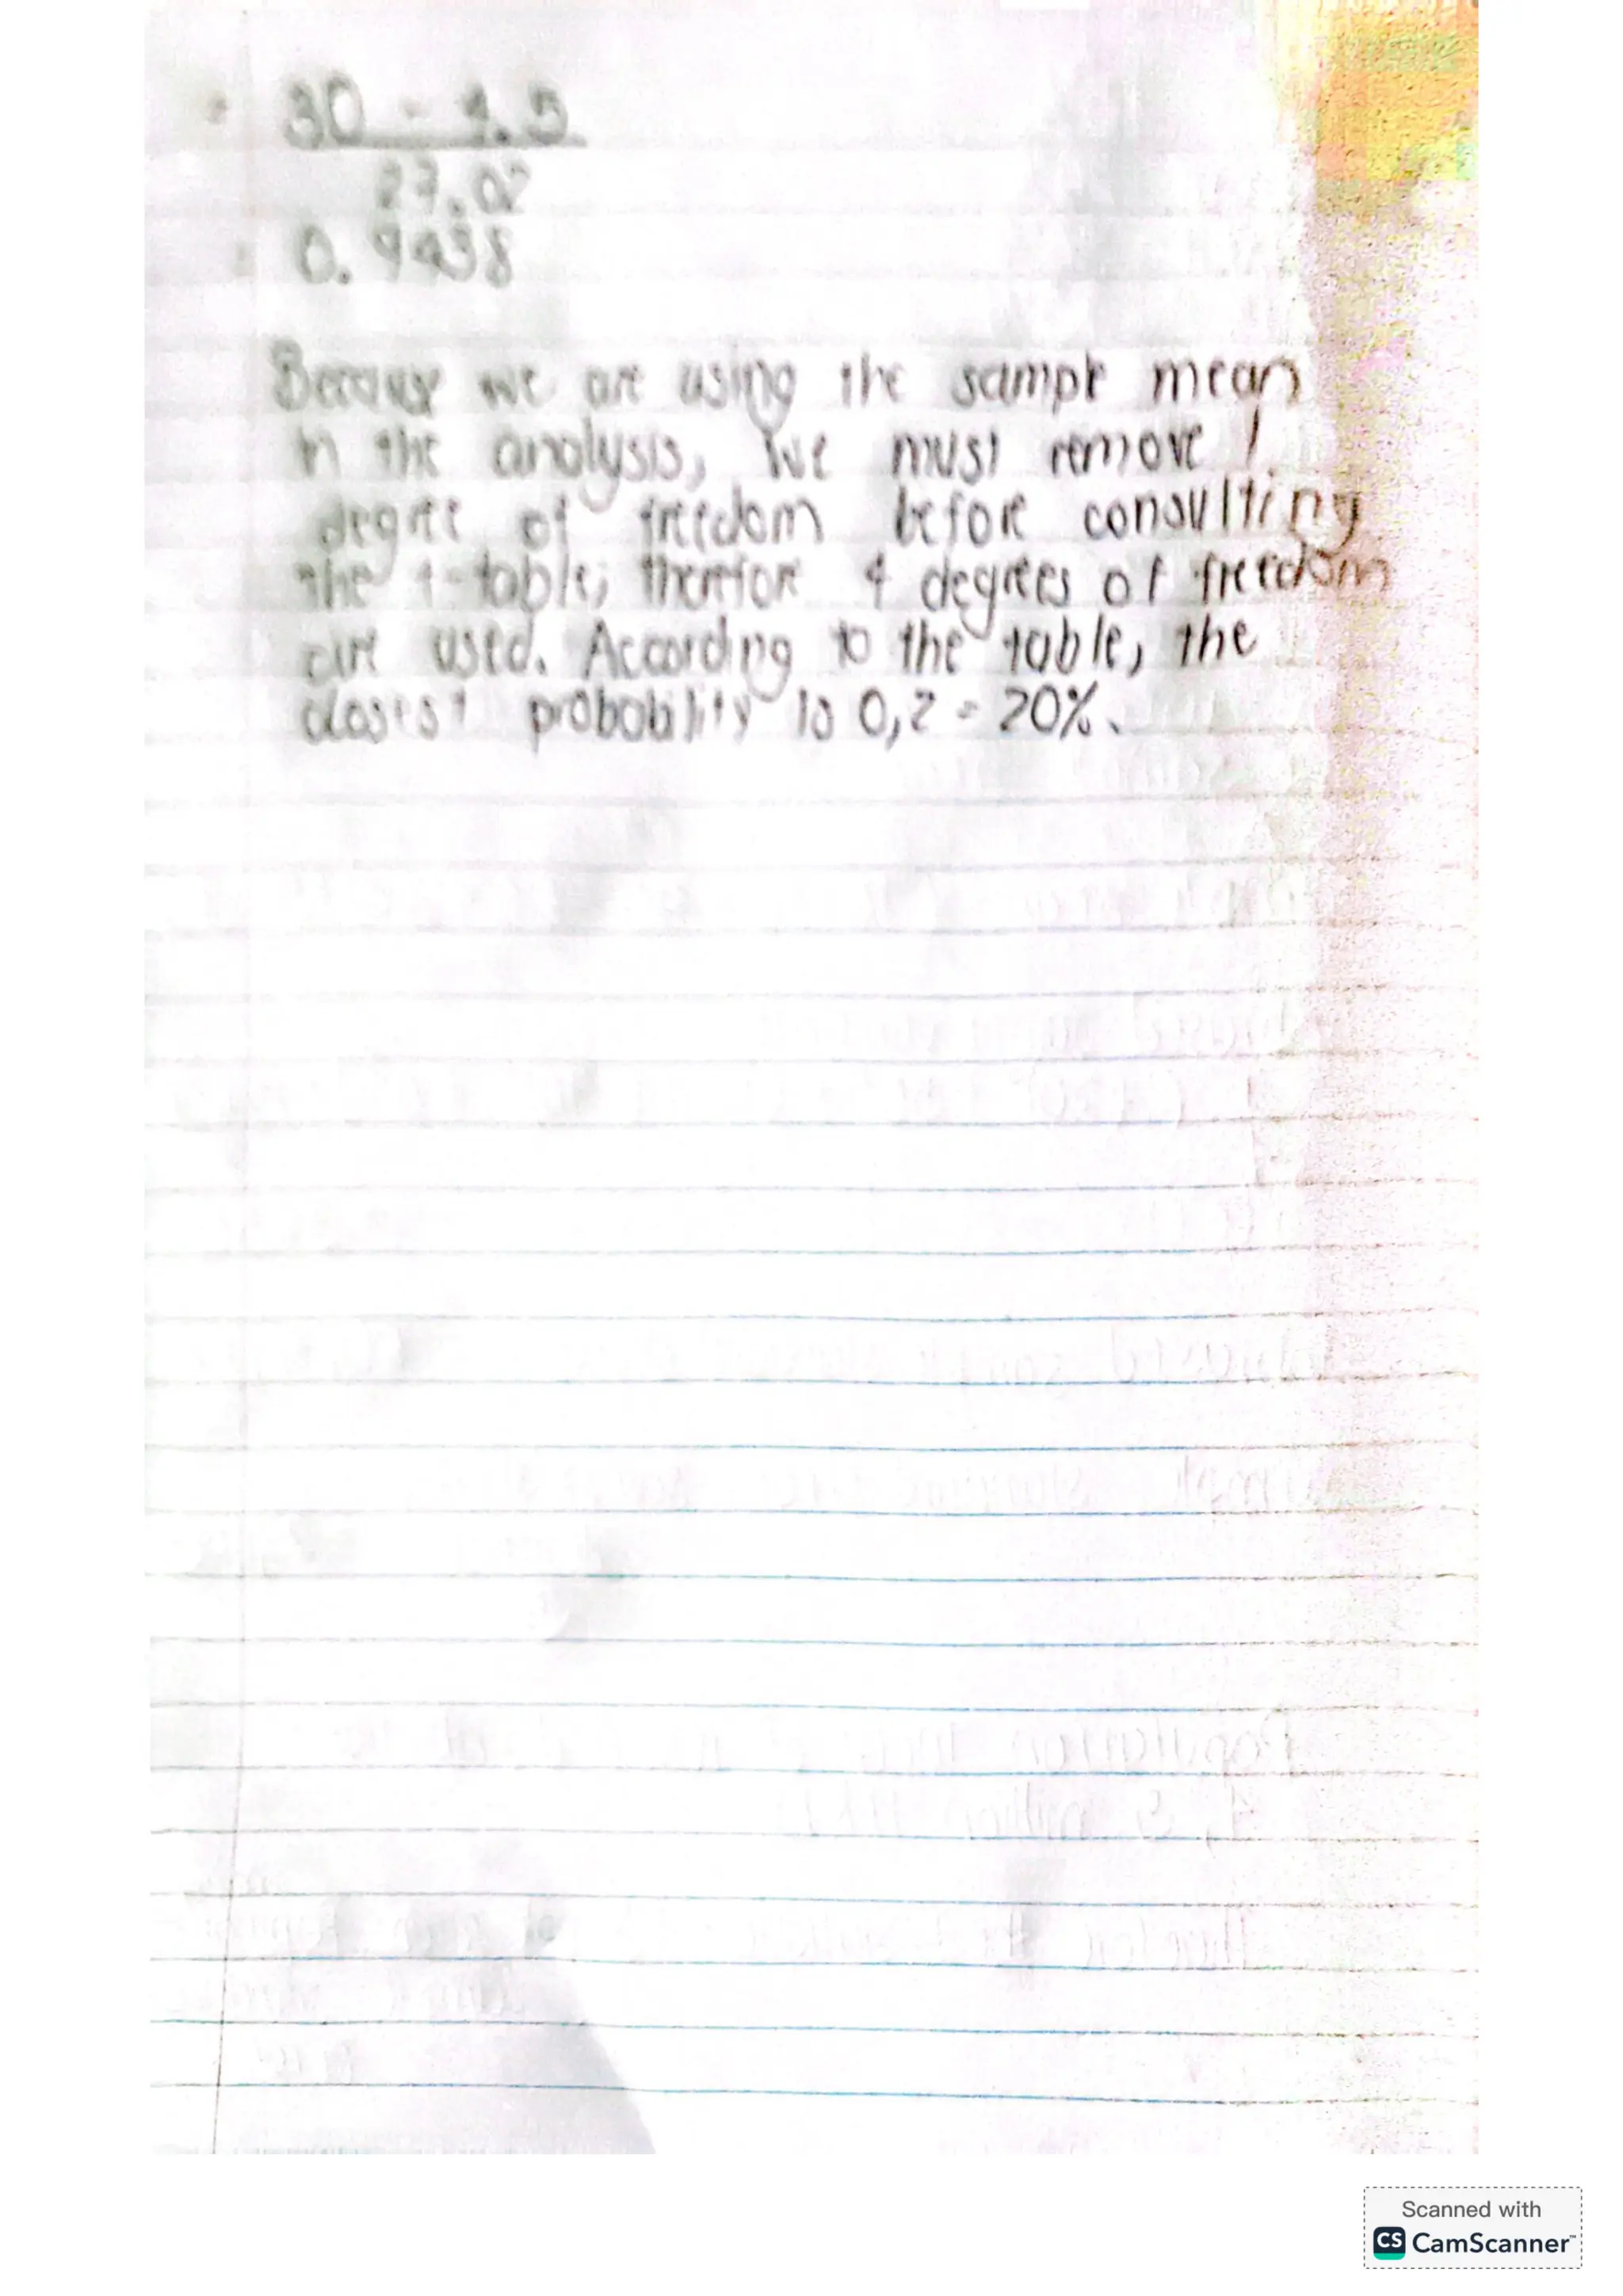 = 30 - 4.5
27.02
= 0.9438
Because we are using the sample mean
in the analysis, we must remove 1
degree of freedom before consulting
the t-table; therefore 4 degrees of freedom
are used. According to the table, the
closest probability is 0,2 = 20%.
Scanned with
CS CamScanner